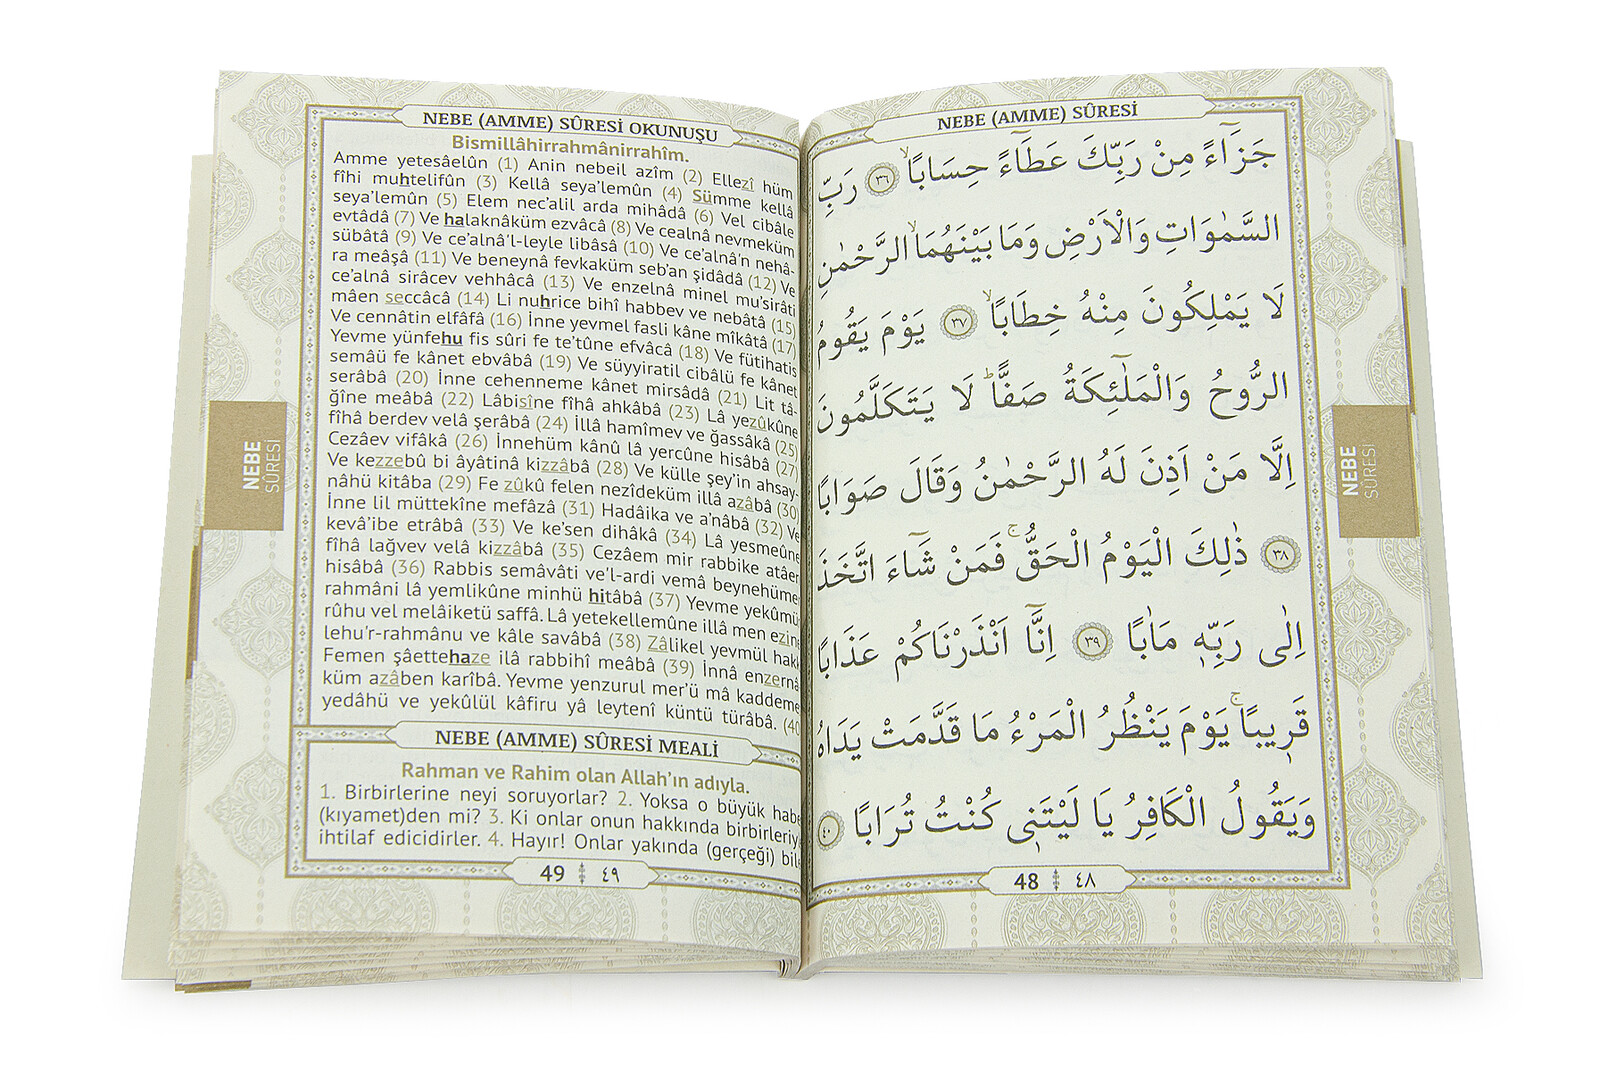 NEBE (AMME) SÛRESİ OKUNUŞU
Bismillâhirrahmânirrahîm.
Amme yetesâelûn (1) Anin nebeil azîm (2) Ellezî hüm
fîhi muhtelifûn (3) Kellâ seya’lemûn (4) Sümme kellâ
seya’lemûn (5) Elem nec’alil arda mihâdâ (6) Vel cibâle
evtâdâ (7) Ve halaknâküm ezvâcâ (8) Ve cealnâ nevmeküm
sübâtâ (9) Ve ce’alnâ’l-leyle libâsâ (10) Ve ce’alnâ’n nehâ-
ra meâşâ (11) Ve beneynâ fevkaküm seb’an şidâdâ (12) Ve
ce’alnâ sirâcev vehhâcâ (13) Ve enzelnâ minel mu’sirâti
mâen seccâcâ (14) Li nuhrice bihî habbev ve nebâtâ (15)
Ve cennâtin elfâfâ (16) İnne yevmel fasli kâne mîkâtâ (17)
Yevme yünfehu fis sûri fe te’tûne efvâcâ (18) Ve fütihatis
semâü fe kânet ebvâbâ (19) Ve süyyiratil cibâlü fe kânet
serâbâ (20) İnne cehenneme kânet mirsâdâ (21) Lit tâ-
ğîne meâbâ (22) Lâbisîne fîhâ ahkâbâ (23) Lâ yezûkûne
fîhâ berdev velâ şerâbâ (24) İllâ hamîmev ve ğassâkâ (25)
Cezâev vifâkâ (26) İnnehüm kânû lâ yercûne hisâbâ (27)
Ve kezzebû bi âyâtinâ kizzâbâ (28) Ve külle şey’in ahsay-
nâhü kitâbâ (29) Fe zûkû felen nezîdeküm illâ azâbâ (30)
İnne lil müttekîne mefâzâ (31) Hadâika ve a’nâbâ (32) Ve
kevâ’ibe etrâbâ (33) Ve ke’sen dihâkâ (34) Lâ yesmeûne
fîhâ lağvev velâ kizzâbâ (35) Cezâem mir rabbike atâen
hisâbâ (36) Rabbis semâvâti ve’l-ardi vemâ beynehümer
rahmâni lâ yemlikûne minhü hitâbâ (37) Yevme yekûmü
rûhu vel melâiketü saffâ. Lâ yetekellemûne illâ men ezine
lehu’r-rahmânu ve kâle savâbâ (38) Zâlikel yevmül hakk
Femen şâettehaze ilâ rabbihî meâbâ (39) İnnâ enzernâ
küm azâben karîbâ. Yevme yenzurul mer’ü mâ kaddeme
yedâhü ve yekûlül kâfiru yâ leytenî küntü türâbâ. (40
NEBE (AMME) SÛRESİ MEALİ
Rahman ve Rahim olan Allah’ın adıyla.
1. Birbirlerine neyi soruyorlar? 2. Yoksa o büyük habe
(kıyamet)den mi? 3. Ki onlar onun hakkında birbirleriy
ihtilaf edicidirler. 4. Hayır! Onlar yakında (gerçeği) bil
49 ٤٩
NEBE SÛRESİ
NEBE (AMME) SÛRESİ
جَزَٓاءً مِنْ رَبِّكَ عَطَٓاءً حِسَابًاۙ ﴿٣٦﴾ رَبِّ
السَّمٰوَاتِ وَالْاَرْضِ وَمَا بَيْنَهُمَاۙ الرَّحْمٰنِ
لَا يَمْلِكُونَ مِنْهُ خِطَابًاۙ ﴿٣٧﴾ يَوْمَ يَقُومُ
الرُّوحُ وَالْمَلٰٓئِكَةُ صَفًّاۜ لَا يَتَكَلَّمُونَ
اِلَّا مَنْ اَذِنَ لَهُ الرَّحْمٰنُ وَقَالَ صَوَابًا
﴿٣٨﴾ ذٰلِكَ الْيَوْمُ الْحَقُّۚ فَمَنْ شَٓاءَ اتَّخَذَ
اِلٰى رَبِّهٖ مَاٰبًا ﴿٣٩﴾ اِنَّٓا اَنْذَرْنَاكُمْ عَذَابًا
قَرٖيبًاۚ يَوْمَ يَنْظُرُ الْمَرْءُ مَا قَدَّمَتْ يَدَاهُ
وَيَقُولُ الْكَافِرُ يَا لَيْتَنٖى كُنْتُ تُرَابًا ﴿٤٠﴾
48 ٤٨
NEBE SÛRESİ